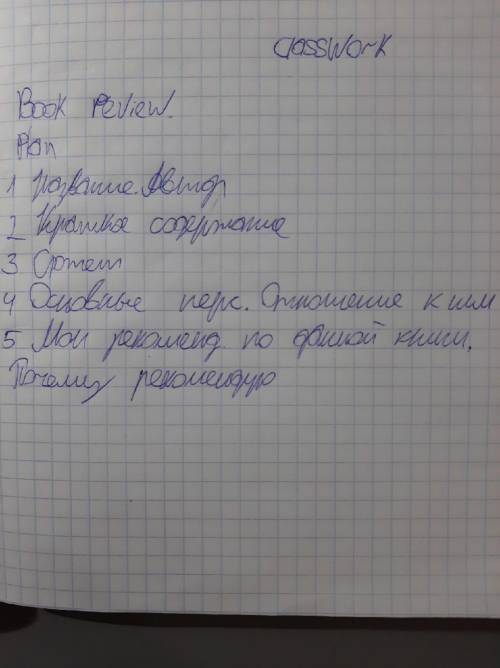 ClassWork
Book Review.
Plan
1 Название. Автор
2 Краткое содержание
3 Сюжет
4 Основные перс. Отношение к ним
5 Мои рекоменд. по данной книги.
Почему рекомендую